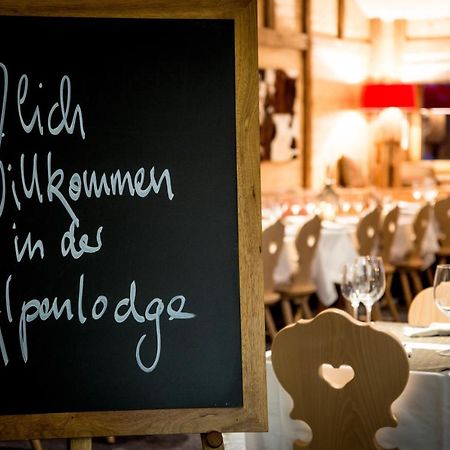 lich
Willkommen
in der
Alpenlodge